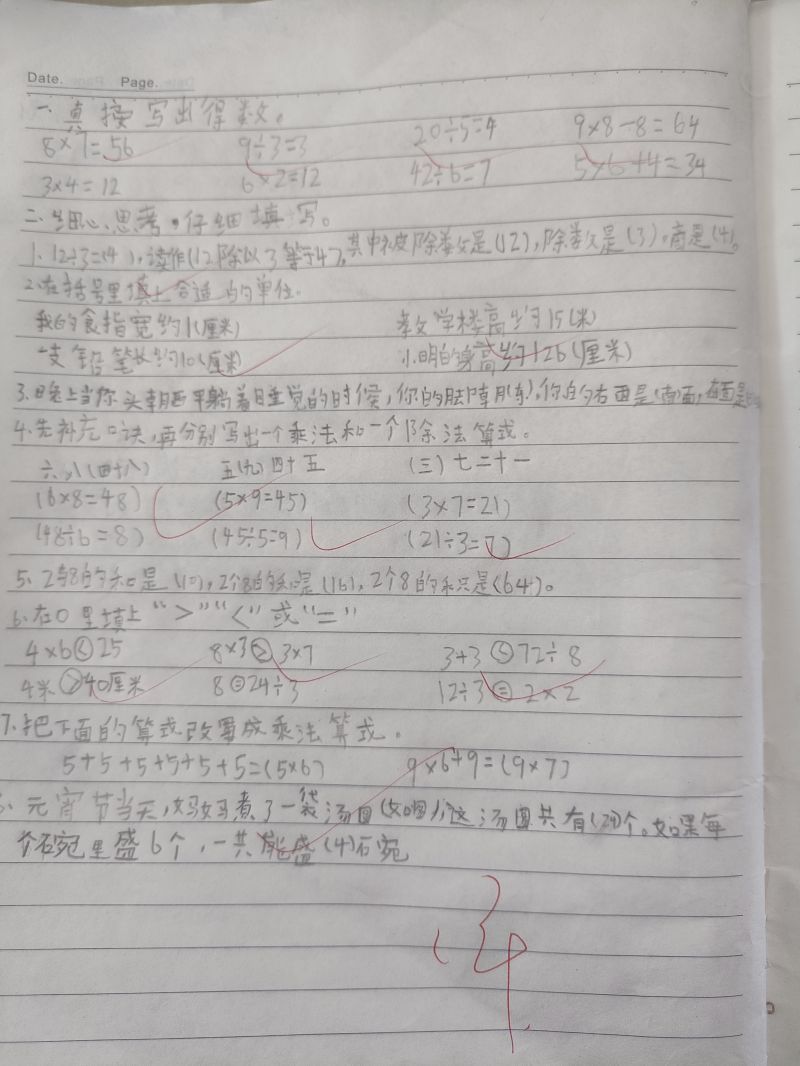 Date. Page.
一、直接写出得数。
8×7=56 9÷3=3 20÷5=4 9×8-8=64
3×4=12 6×2=12 42÷6=7 5×6+4=34
二、细心思考,仔细填写。
1、12÷3=(4),读作(12除以3等于4),其中被除数是(12),除数是(3),商是(4)。
2、在括号里填上合适的单位.
我的食指宽约1(厘米) 教学楼高约15(米)
一支铅笔长约10(厘米) 小明的身高约126(厘米)
3、晚上当你头朝西平躺着睡觉的时候,你的脚朝(东),你的右面是(南)面,左面是
4、先补充口诀,再分别写出一个乘法和一个除法算式。
六八(四十八) 五(九)四十五 (三)七二十一
(6×8=48) (5×9=45) (3×7=21)
(48÷6=8) (45÷5=9) (21÷3=7)
5、2与8的和是(10),2个8的和是(16),2个8的乘只是(64)。
6、在O里填上“>”“<”或“=”
4×6<25 8×3>3×7 3+3<72÷8
4米>40厘米 8=24÷3 12÷3=2×2
7、把下面的算式改写成乘法算式。
5+5+5+5+5+5=(5×6) 9×6+9=(9×7)
元宵节当天,妈妈煮了一袋汤圆(如图),这汤圆共有(24)个。如果每
个碗里盛6个,一共能盛(4)碗